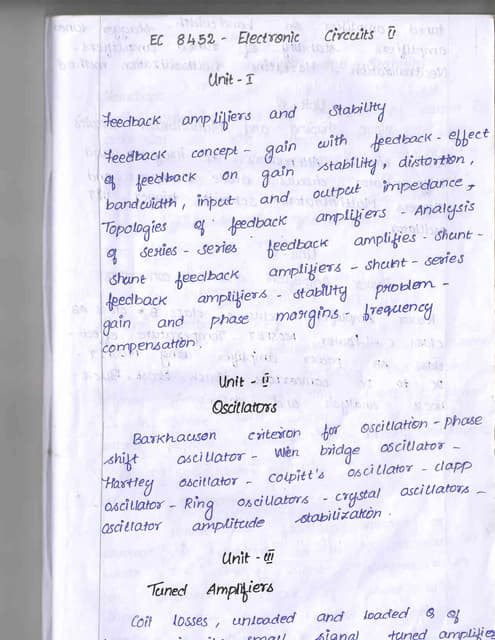 EC 8452 - Electronic Circuits II
Unit - I
Feedback amplifiers and Stability
Feedback concept - gain with feedback - effect
of feedback on gain stability, distortion,
bandwidth, input and output impedance,
Topologies of feedback amplifiers - Analysis
of series - series feedback amplifies - shunt -
shunt feedback amplifiers - shunt - series
feedback amplifiers - stability problem -
gain and phase margins - frequency
compensation.
Unit - II
Oscillators
Barkhausen criterion for oscillation - phase
shift oscillator - Wên bridge oscillator -
Hartley oscillator - Colpitt's oscillator - clapp
oscillator - Ring oscillators - crystal oscillators -
oscillator amplitude stabilization.
Unit - III
Tuned Amplifiers
Coil losses, unloaded and loaded Q of
small signal tuned amplifie